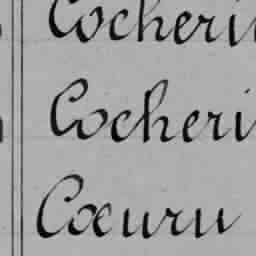 Cocheri
Cocheri
Cœuru